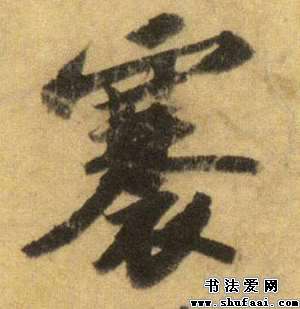 褰
书法爱网
www.shufaai.com